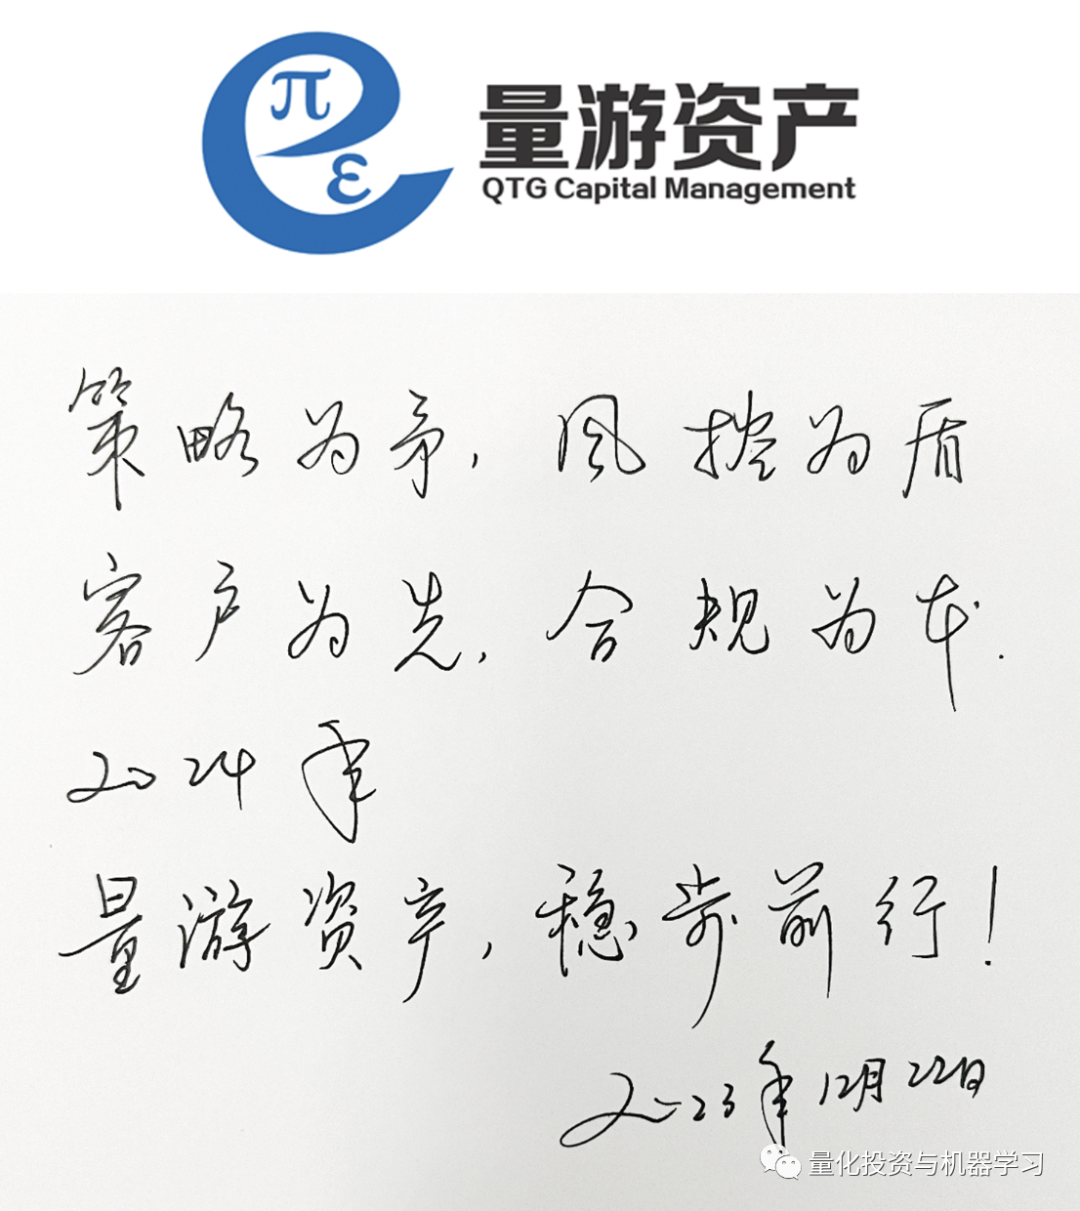 π
ε
量游资产
QTG Capital Management
策略为矛，风控为盾
客户为先，合规为本.
2024年
量游资产，稳步前行！
2023年12月22日
量化投资与机器学习